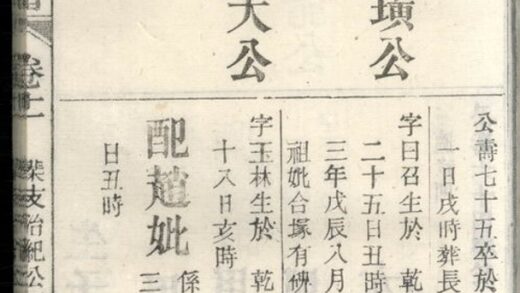 公壽七十五卒於
一日戌時葬長
璜公
字曰召生於 乾
二十五日丑時
三年戊辰八月
祖妣合塚有碑
大公
字玉林生於 乾
十又日亥時
配趙妣 係
三
日丑時
卷十
柴支治紀公